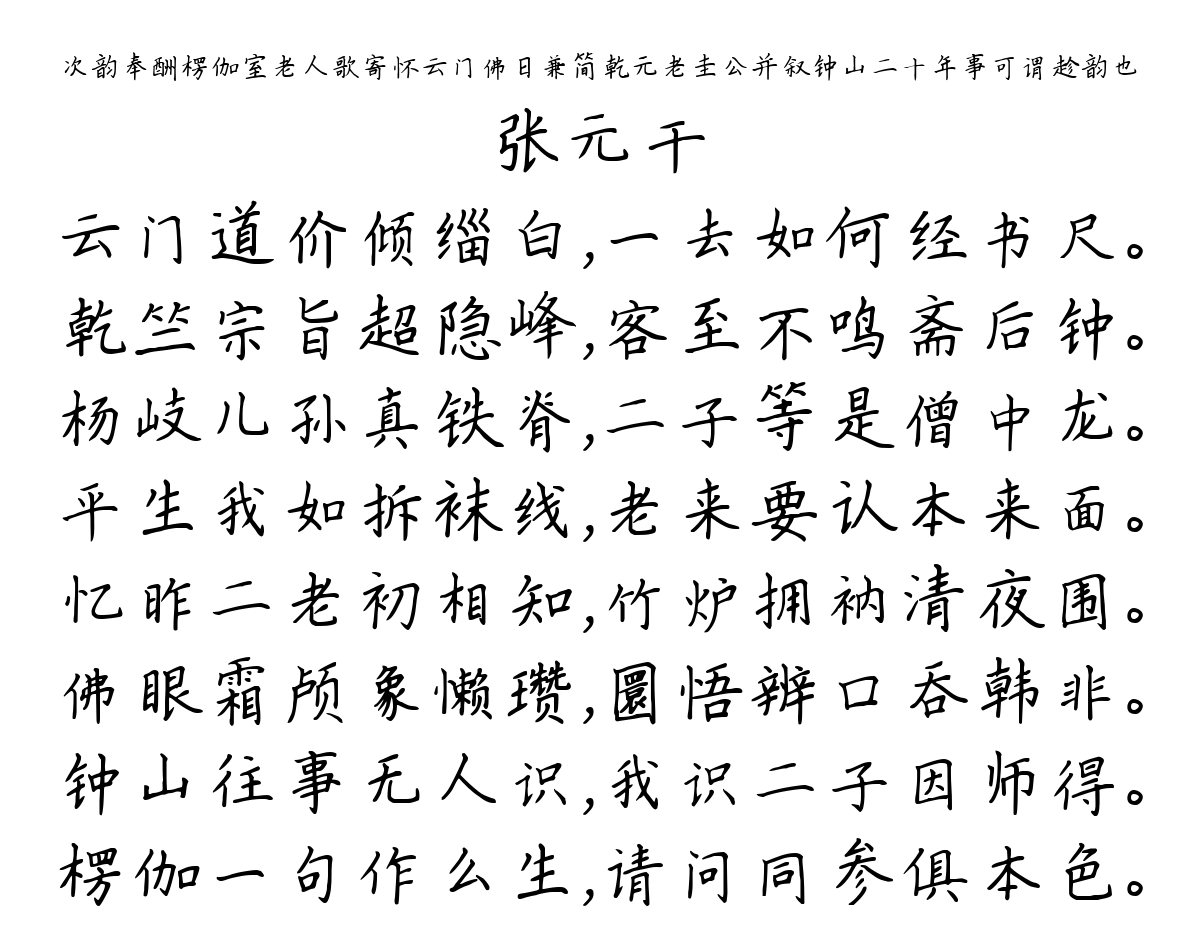 次韵奉酬楞伽室老人歌寄怀云门佛日兼简乾元老圭公并叙钟山二十年事可谓趁韵也
张元干
云门道价倾缁白,一去如何经书尺。
乾竺宗旨超隐峰,客至不鸣斋后钟。
杨岐儿孙真铁脊,二子等是僧中龙。
平生我如拆袜线,老来要认本来面。
忆昨二老初相知,竹炉拥衲清夜围。
佛眼霜颅象懒瓒,圜悟辨口吞韩非。
钟山往事无人识,我识二子因师得。
楞伽一句作么生,请问同参俱本色。